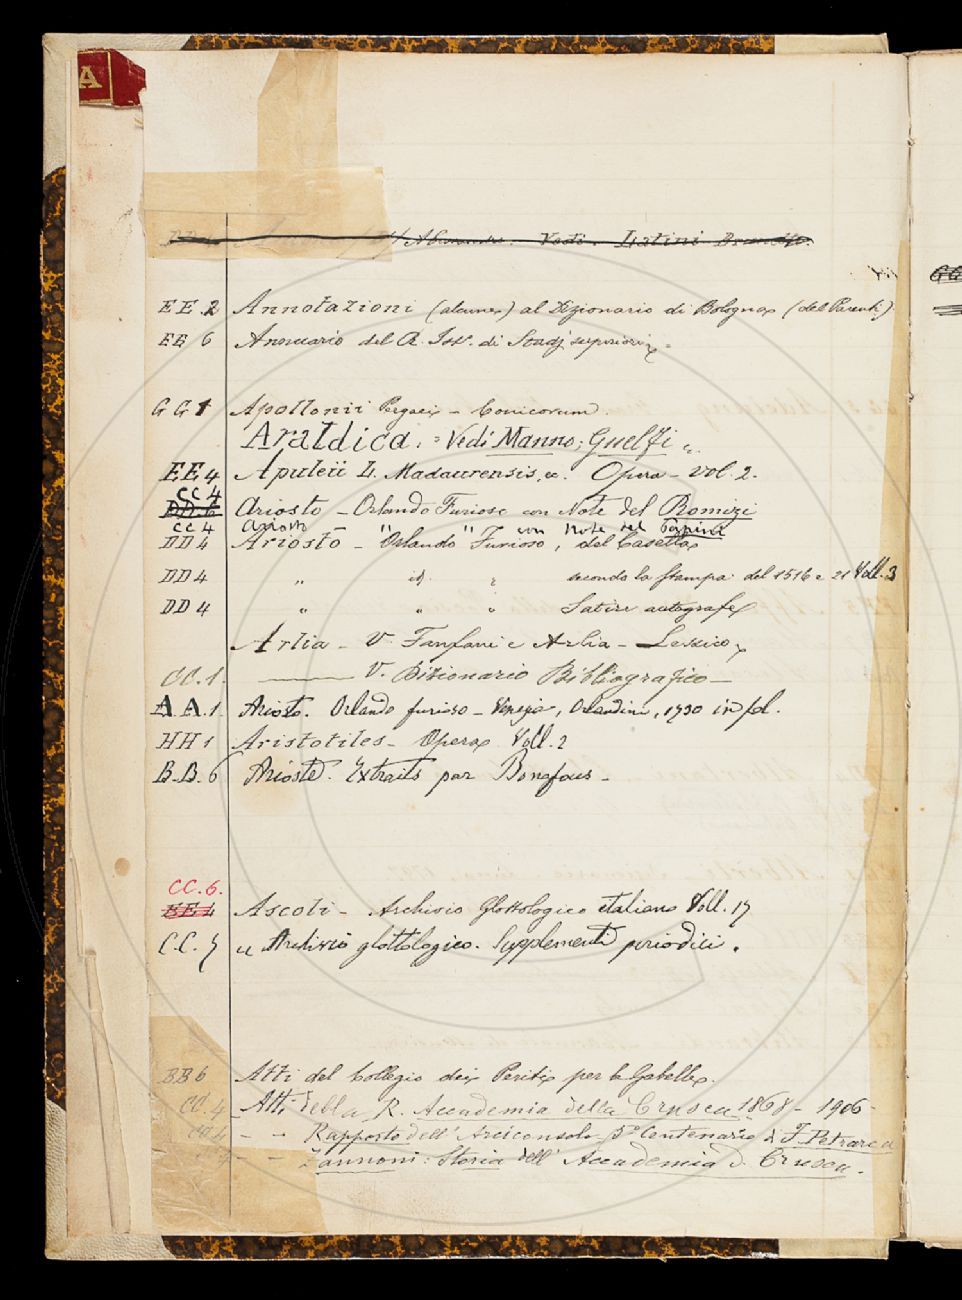 A
Vedi. Latini Brunetto.
EE.2 Annotazioni (alcune) al Dizionario di Bologna (del Parenti)
EE 6 Annuario del R. Ist. di Studj superiori
GG1 Apollonii Pergaei - Conicorum
Araldica. = Vedi Manno; Guelfi „
EE 4 Apuleii L. Madaurensis, &. Opera - vol. 2.
CC 4
DD.6 Ariosto - Orlando Furioso con Note del Romizi
CC 4 Ariosto — " " con Note del Papini
DD 4 Ariosto - Orlando Furioso, del Casella
DD4 „ id. „ secondo la stampa del 1516 e 21 Voll. 3
DD 4 „ „ „ Satire autografe
Arlia - V. Fanfani e Arlia - Lessico
CC.1. —— V. Dizionario Bibliografico —
AA.1 Ariosto. Orlando furioso - Venezia, Orlandini, 1730 in fol.
HH1 Aristotiles - Opera Voll. 2
B.B.6 Arioste. Extraits par Bonafous -
CC.6.
EE 4 Ascoli - Archivio Glottologico italiano Voll. 17
CC.7 „ Archivio glottologico. Supplementi periodici.
BB6 Atti del Collegio dei Periti per le Gabelle.
CC.4 Atti della R. Accademia della Crusca 1868 - 1906
CC4 - - Rapporto dell' Arciconsolo 5º Centenario di F. Petrarca
4 - - Zannoni: Storia dell' Accademia d. Crusca.
GG